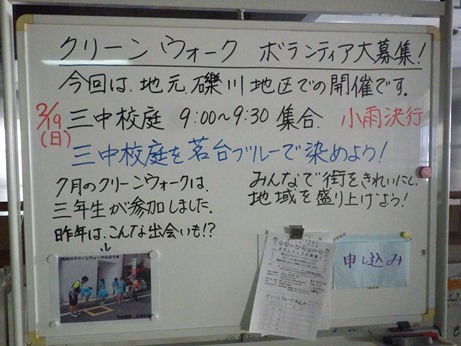 クリーンウォーク ボランティア大募集!
今回は、地元、礫川地区での開催です。
2/19(日) 三中校庭 9:00~9:30 集合. 小雨決行
三中校庭を茗台ブルーで染めよう!
7月のクリーンウォークは、
三年生が参加しました。
昨年は、こんな出会いも!?
みんなで街をきれいにし、
地域を盛り上げよう!
申し込み